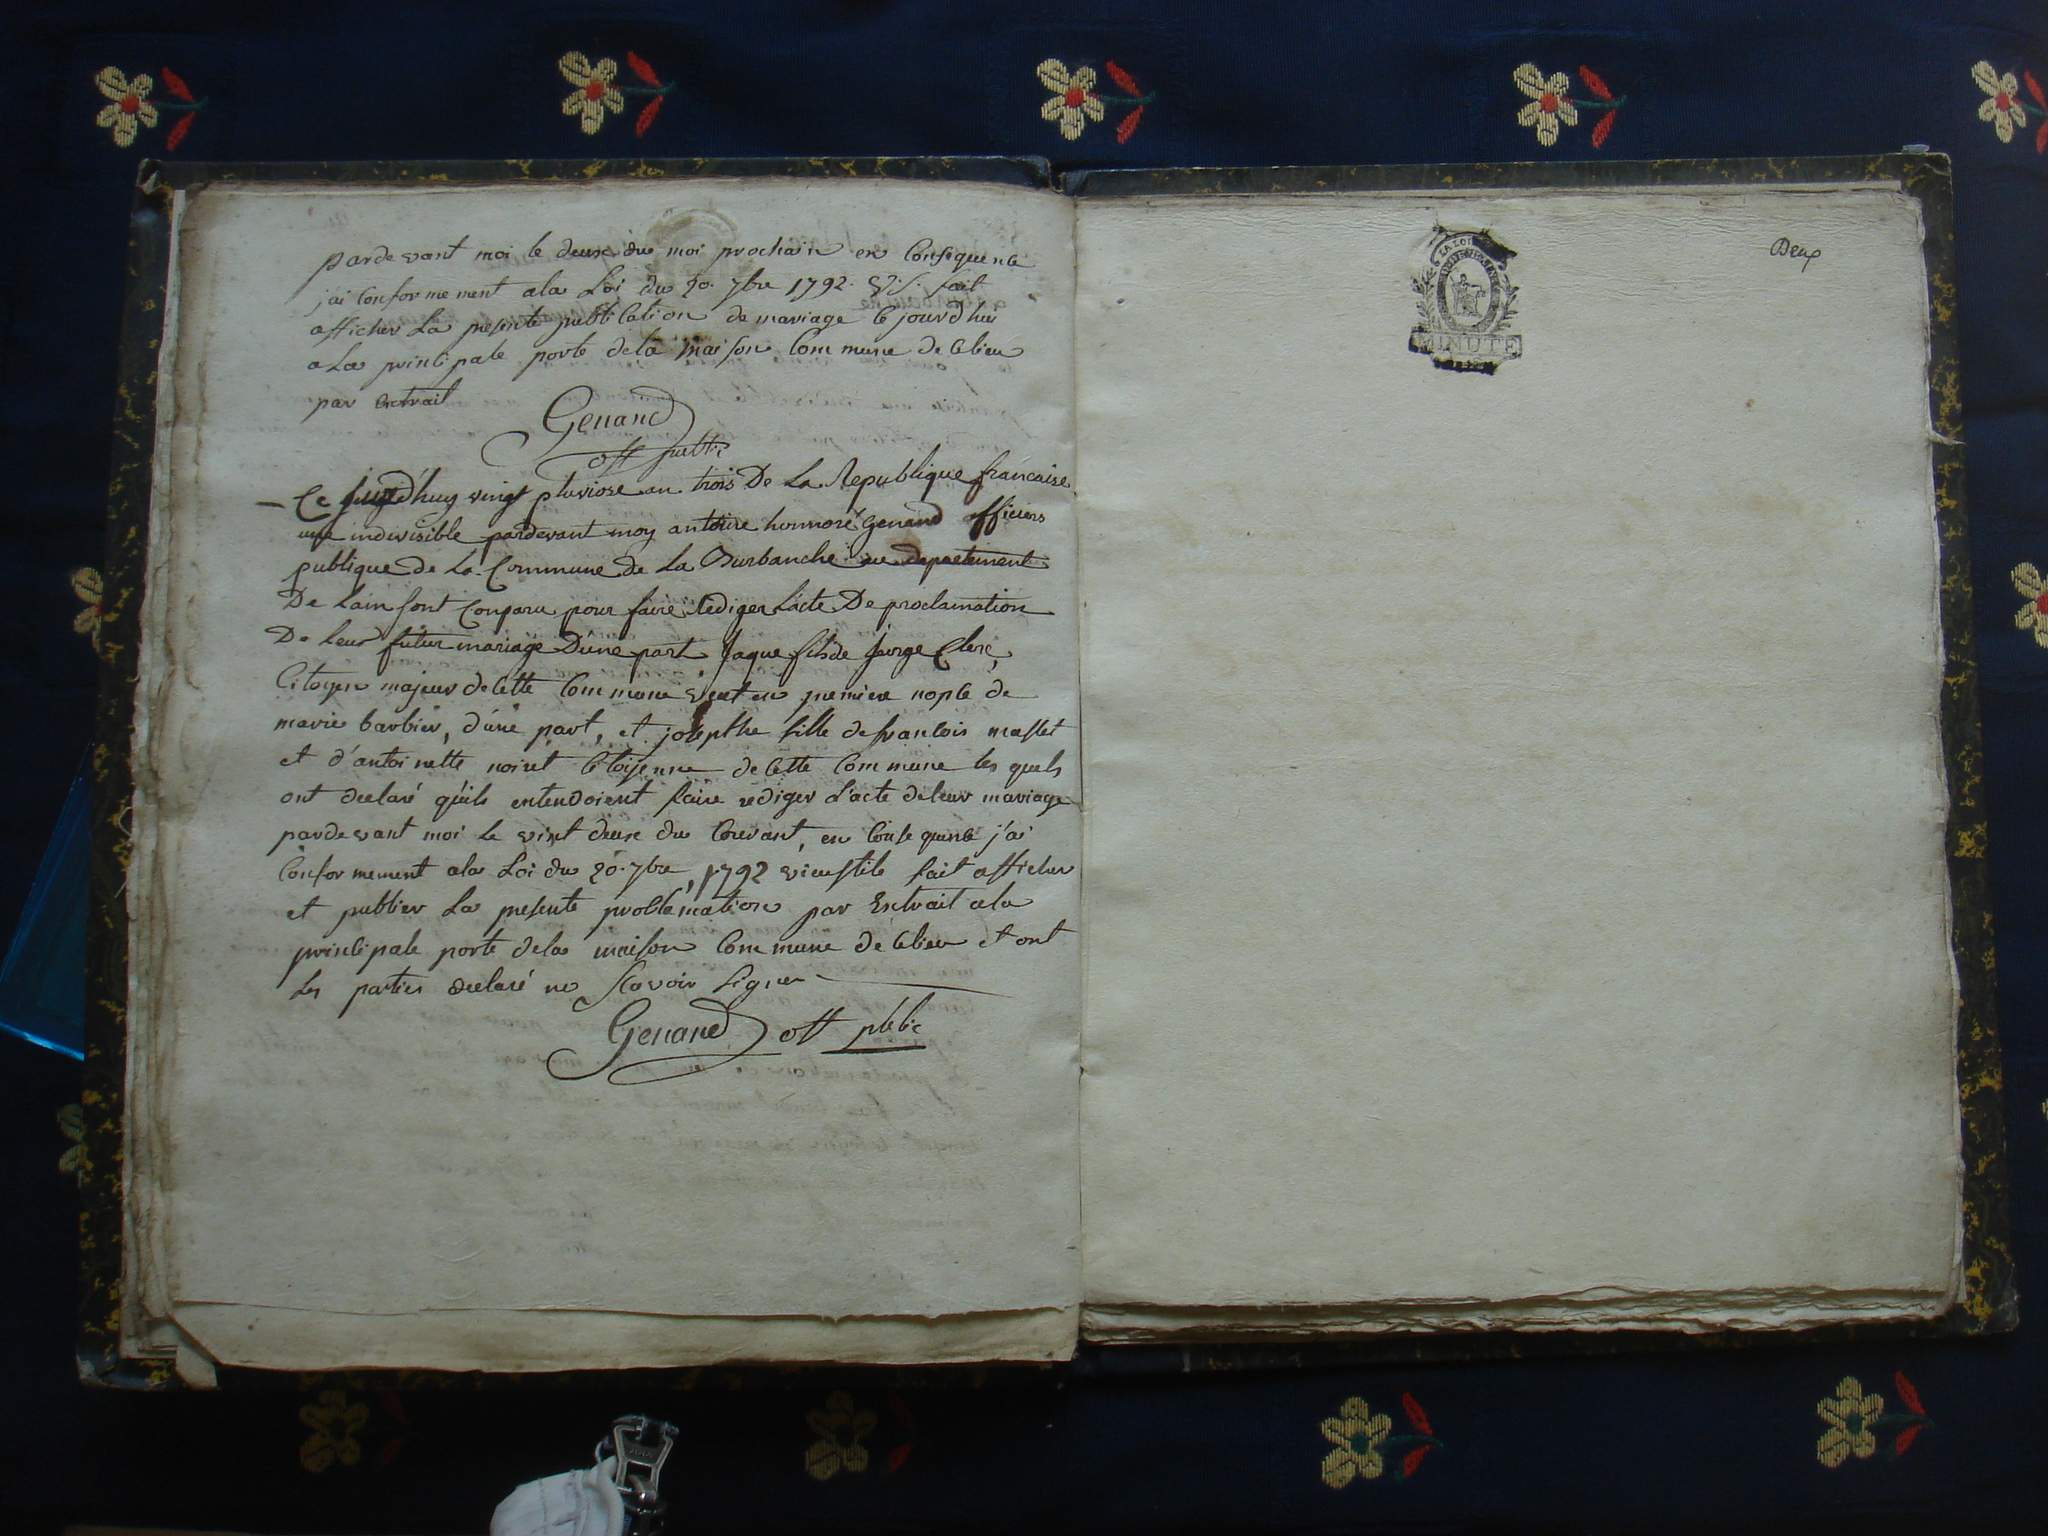 pardevant moi le deuse du moi prochain en Consequence
j'ai Conformement a la Loi du 20. 7bre 1792. V. S. fait
afficher La presente publication de mariage Ce jourdhui
a La principale porte de la maison Commune de Celieu
par extrait
Genand
off public
Ce jourd'huy vingt pluviose an trois De La Republique francaise
une indivisible pardevant moy antoine honnoré Genand officiers
publique De La Commune De La Burbanche au departement
De Lain sont Conparu pour faire rediger L'acte De proclamation
De Leur futur mariage D'une part Jaque fils de Jeorge Clerc,
Citoyen majeur de Cette Commune veuf en premiere nopce de
marie barbier, d'une part, et josepthe fille de francois masset
et d'antoinette noiret Citoyenne de Cette Commune les quels
ont declaré qu'ils entendoient faire rediger L'acte de leur mariage
pardevant moi le vint deuse du Courant, en Consequence j'ai
Conformement a la Loi du 20. 7bre, 1792 vieustile fait afficher
et publier La presente proclamation par Extrait a la
principale porte de la maison Commune de Celieu et ont
Les parties declaré ne Scavoir Signer
Genand off public
LA LOI
MINUTE
Deux